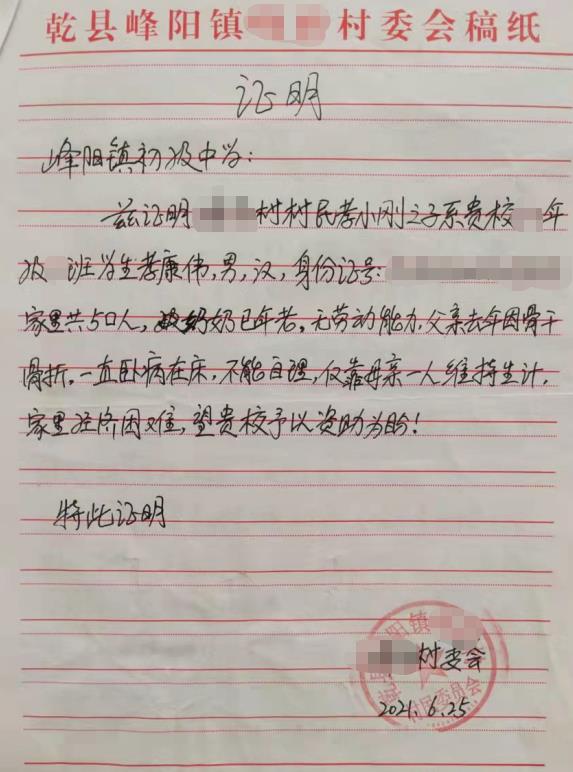 乾县峰阳镇 村委会稿纸
证明
峰阳镇初级中学：
兹证明 村村民孝小刚之子系贵校 年
级 班学生孝康伟，男，汉，身份证号：
家里共5口人，奶奶已年老。无劳动能力，父亲去年因骨干
骨折，一直卧病在床，不能自理，仅靠母亲一人维持生计，
家里经济困难，望贵校予以资助为盼！
特此证明
村委会
2021.6.25
阳镇
村民委员会